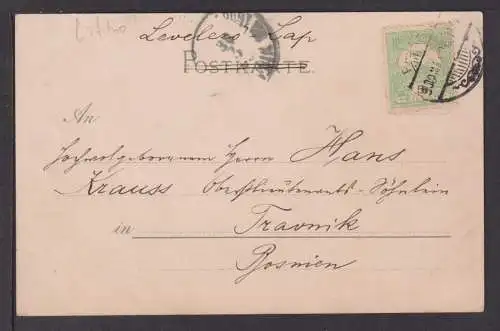 Litho
Levelező Lap
POSTKARTE.
An
Hochwolgeborenen Herrn Hans
Krauss Oberstlieutenants-Söhnlein
in Travnik
Bosnien